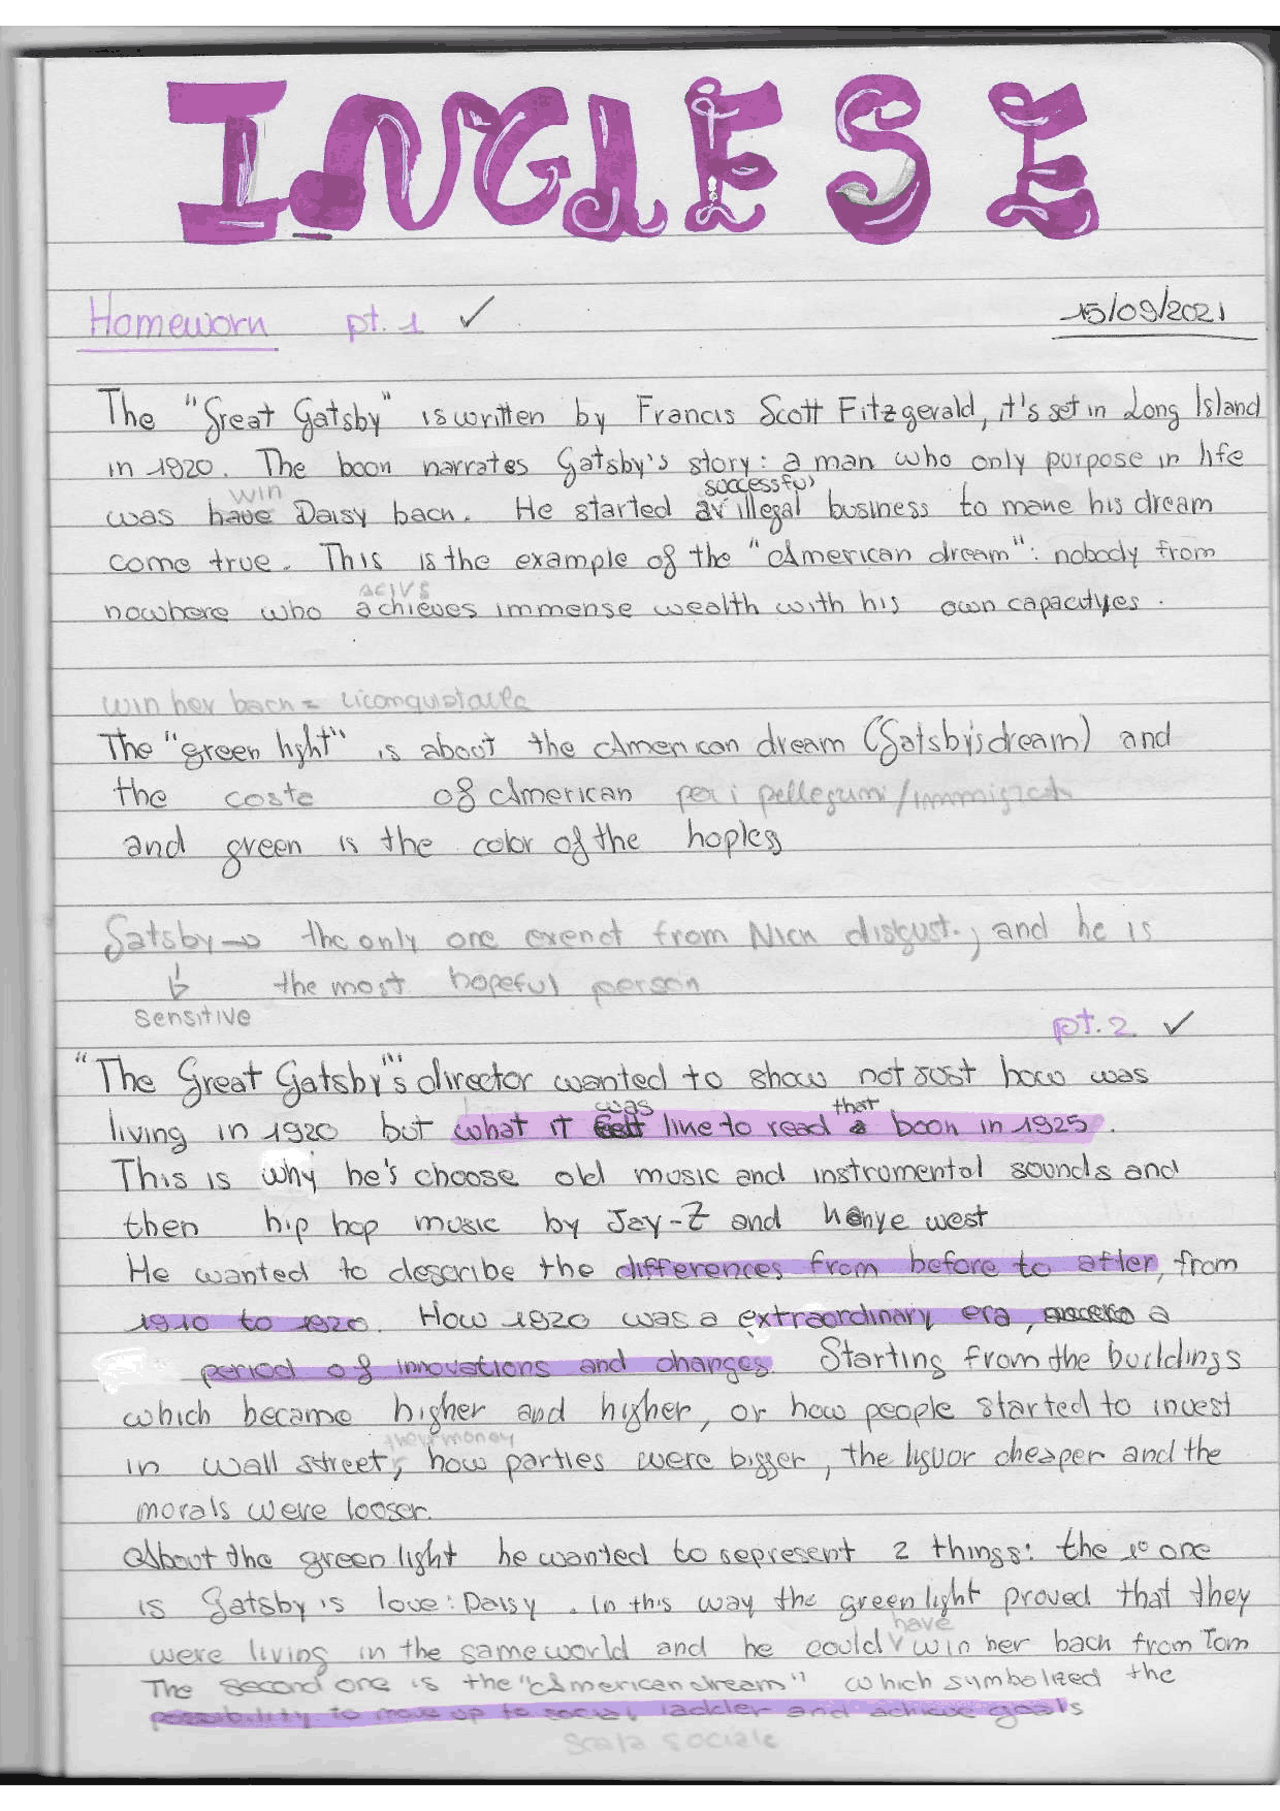 INGLESE
Homework pt. 1 ✓ 15/09/2021
The "Great Gatsby" is written by Francis Scott Fitzgerald, it's set in Long Island
in 1920. The book narrates Gatsby's story: a man who only purpose in life
win successful
was have Daisy back. He started an illegal business to make his dream
come true. This is the example of the "American dream": nobody from
acivs
nowhere who achieves immense wealth with his own capacityes.
win her back = riconquistarla
The "green light" is about the American dream (Gatsby's dream) and
the coste of American per i pellegrini/immigrati
and green is the color of the hopless
Gatsby → the only one exenct from Nick disgust., and he is
↓ the most hopeful person
sensitive
pt. 2 ✓
"The Great Gatsby"'s director wanted to show not just how was
was that
living in 1920 but what it felt like to read a book in 1925.
This is why he's choose old music and instrumental sounds and
then hip hop music by Jay-Z and Kanye west
He wanted to describe the differences from before to after, from
1910 to 1920. How 1920 was a extraordinary era, a
period of innovations and changes. Starting from the buildings
which became higher and higher, or how people started to invest
their money
in wall street, how parties were bigger, the liquor cheaper and the
morals were looser.
About the green light he wanted to represent 2 things: the 1° one
is Gatsby's love: Daisy. In this way the green light proved that they
have
were living in the same world and he could win her back from Tom
The second one is the "American dream" which symbolized the
possibility to move up to social ladder and achieve goals
scala sociale